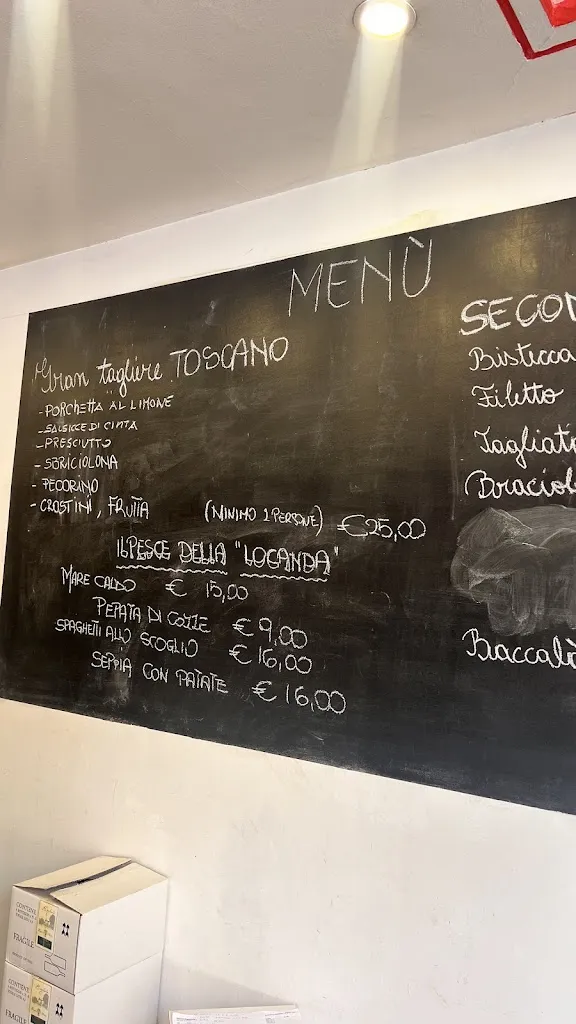 MENÙ
Gran tagliere TOSCANO
- PORCHETTA AL LIMONE
- SALSICCE DI CINTA
- PRESCIUTTO
- SBRICIOLONA
- PECORINO
- CROSTINI, FRUTTA (MINIMO 2 PERSONE) €25,00
IL PESCE DELLA "LOCANDA"
MARE CALDO € 15,00
PEPATA DI COZZE € 9,00
SPAGHETTI ALLO SCOGLIO € 16,00
SEPPIA CON PATATE € 16,00
SECON
Bistecca
Filetto
Tagliata
Braciol
Baccalà
CONTIENE
FRAGILE
CONTIENE
FRAGILE